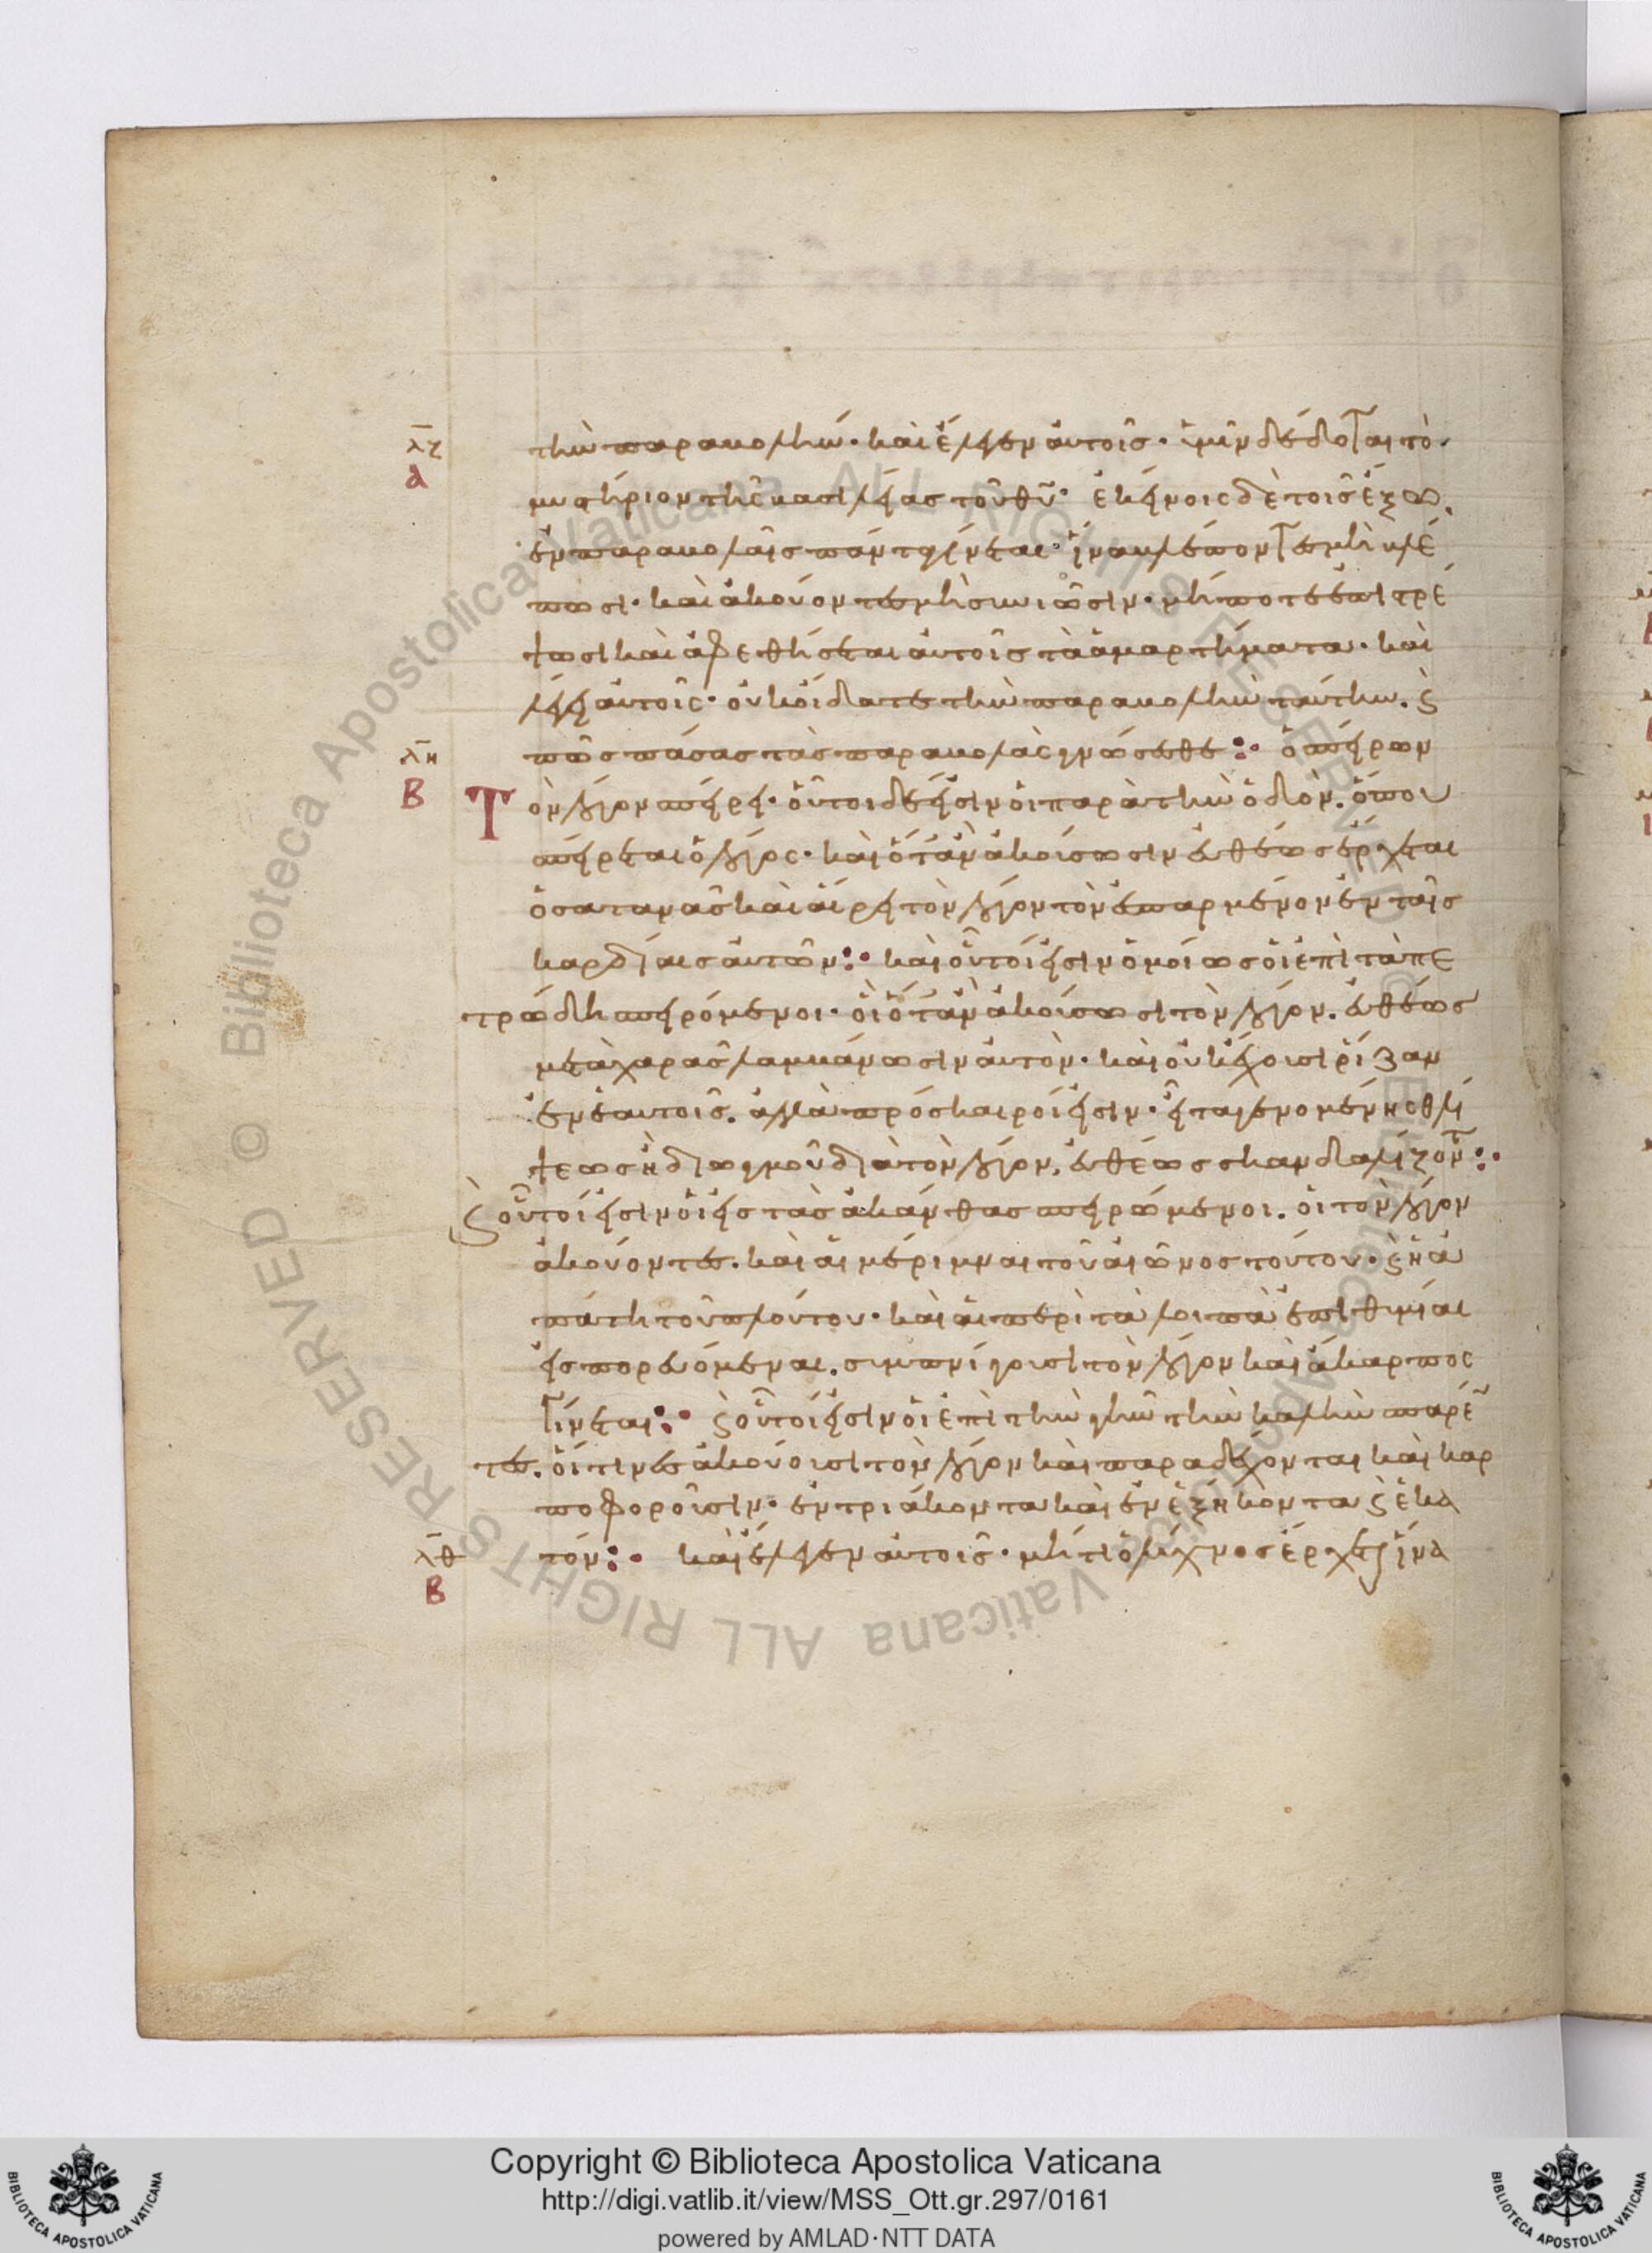 λζ
α
τὴν παραβολήν· καὶ ἔλεγεν αὐτοῖς· ὑμῖν δέδοται τὸ
μυστήριον τῆς βασιλείας τοῦ θῦ· ἐκείνοις δὲ τοῖς ἔξω,
ἐν παραβολαῖς πάντα γίνεται· ἵνα βλέποντες μὴ βλέ
πωσι· καὶ ἀκούοντες μὴ συνιῶσιν· μήποτε ἐπιστρέ
ψωσι καὶ ἀφεθήσεται αὐτοῖς τὰ ἁμαρτήματα· καὶ
λέγει αὐτοῖς· οὐκ οἴδατε τὴν παραβολὴν ταύτην. ϗ
πῶς πάσας τὰς παραβολὰς γνώσεσθε: ὁ σπείρων
λη
Β
Τὸν λόγον σπείρει· οὗτοι δέ εἰσιν οἱ παρὰ τὴν ὁδὸν. ὅπου
σπείρεται ὁ λόγος· καὶ ὅταν ἀκούσωσιν εὐθέως ἔρχεται
ὁ σατανᾶς καὶ αἴρει τὸν λόγον τὸν ἐσπαρμένον ἐν ταῖς
καρδίαις αὐτῶν: καὶ οὗτοί εἰσιν ὁμοίως οἱ ἐπὶ τὰ πε
τρώδη σπειρόμενοι· οἳ ὅταν ἀκούσωσι τὸν λόγον. εὐθέως
μετὰ χαρᾶς λαμβάνωσιν αὐτὸν· καὶ οὐκ ἔχουσι ῥίζαν
ἐν ἑαυτοῖς. ἀλλὰ πρόσκαιροί εἰσιν· εἶτα γενομένης θλί
ψεως ἢ διωγμοῦ διὰ τὸν λόγον, εὐθέως σκανδαλίζοντ:
ϗ οὗτοί εἰσιν οἱ εἰς τὰς ἀκάνθας σπειρώμενοι. οἱ τὸν λόγον
ἀκούοντες. καὶ αἱ μέριμναι τοῦ αἰῶνος τούτου· ϗ ἡ ἀ
πάτη τοῦ πλούτου· καὶ αἱ περὶ τὰ λοιπὰ ἐπιθυμίαι
εἰσπορευόμεναι. συμπνίγουσι τὸν λόγον καὶ ἄκαρπος
γίνεται: ϗ οὗτοί εἰσιν οἱ ἐπὶ τὴν γῆν τὴν καλὴν σπαρέν
τες. οἵτινες ἀκούουσι τὸν λόγον καὶ παραδέχονται καὶ καρ
ποφοροῦσιν· ἐν τριάκοντα καὶ ἐν ἑξήκοντα ϗ ἑκα
τόν: καὶ ἔλεγεν αὐτοῖς· μήτι ὁ λύχνος ἔρχεται ἵνα
λθ
Β
Copyright © Biblioteca Apostolica Vaticana
http://digi.vatlib.it/view/MSS_Ott.gr.297/0161
powered by AMLAD·NTT DATA
BIBLIOTECA APOSTOLICA VATICANA
BIBLIOTECA APOSTOLICA VATICANA
© Biblioteca Apostolica Vaticana ALL RIGHTS RESERVED
© Biblioteca Apostolica Vaticana ALL RIGHTS RESERVED